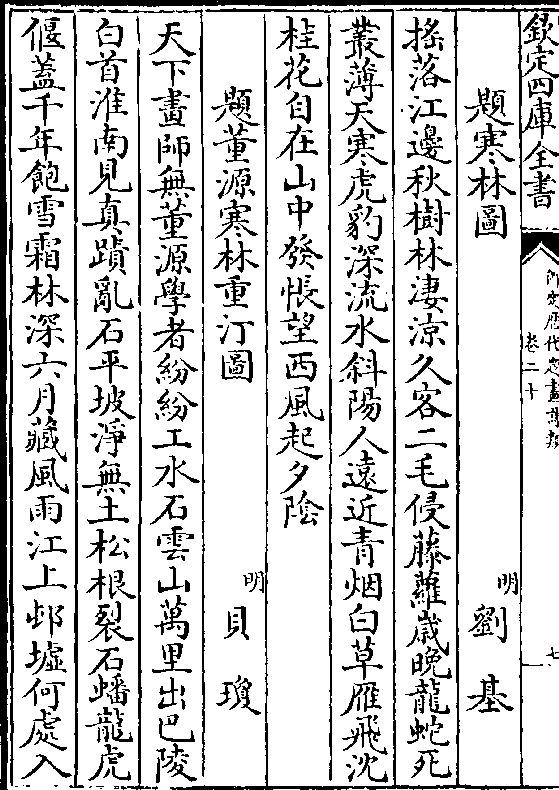 欽定四庫全書
御定歴代題畫詩類
卷二十
七
題寒林圖
明
劉基
搖落江邊秋樹林淒涼久客二毛侵藤蘿歲晚龍蛇死
叢薄天寒虎豹深流水斜陽人遠近青烟白草雁飛沈
桂花自在山中發悵望西風起夕陰
題董源寒林重汀圖
明
貝瓊
天下畫師無董源學者紛紛工水石雲山萬里出巴陵
白首淮南見真蹟亂石平坡淨無土松根裂石蟠龍虎
偃蓋千年飽雪霜林深六月藏風雨江上邨墟何處入